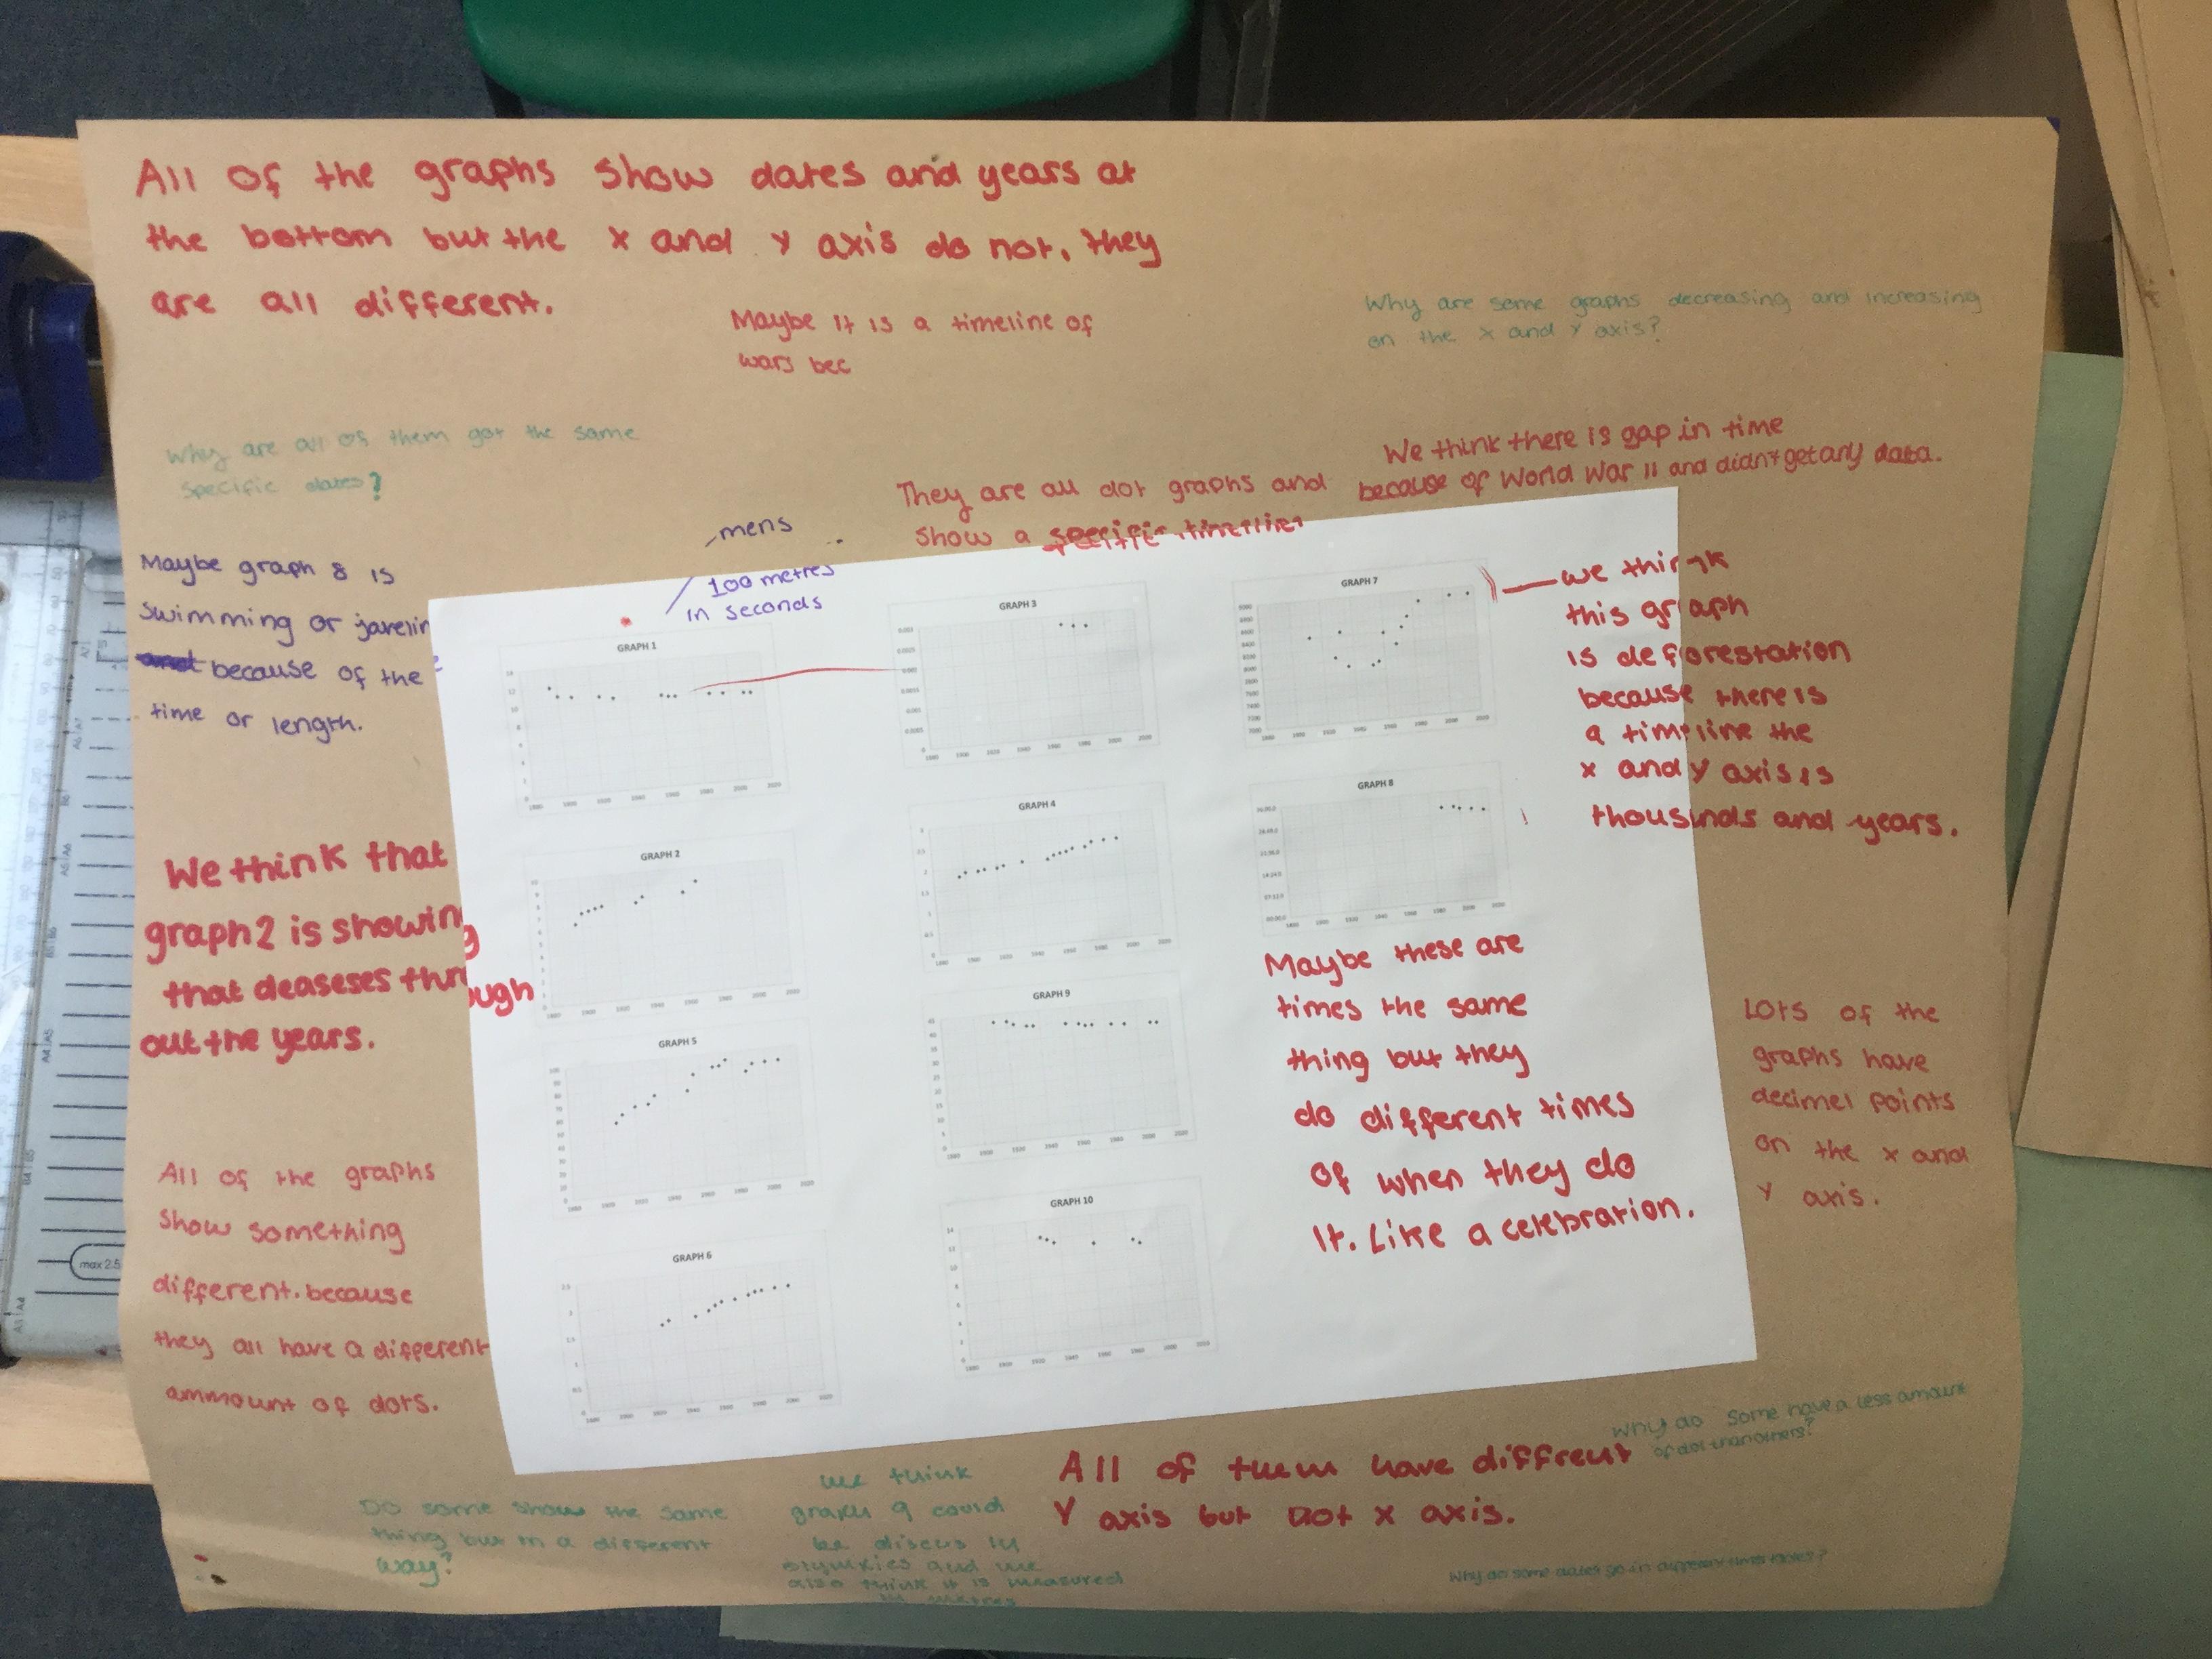 All of the graphs show dates and years at
the bottom but the x and y axis do not, they
are all different.
Maybe it is a timeline of
wars bec
Why are some graphs decreasing and increasing
on the x and y axis?
Why are all of them got the same
specific dates?
They are all dot graphs and
show a specific timeline
We think there is gap in time
because of World War II and didn't get any data.
mens
100 metres
in seconds
Maybe graph 8 is
swimming or javelin
because of the
time or length.
we think
this graph
is deforestation
because there is
a timeline the
x and y axis is
thousunds and years.
We think that
graph 2 is showing
that deaseses through
out the years.
All of the graphs
show something
different. because
they all have a different
ammount of dots.
GRAPH 1
GRAPH 2
GRAPH 5
GRAPH 6
GRAPH 3
GRAPH 4
GRAPH 9
GRAPH 10
GRAPH 7
GRAPH 8
Maybe these are
times the same
thing but they
do different times
of when they do
It. Like a celebration.
Lots of the
graphs have
decimel points
on the x and
y axis.
Do some show the same
thing but in a different
way?
we think
graph 9 could
be discus in
olympics and we
also think it is measured
in metres
All of them have diffrent
Y axis but not x axis.
Why do some have a less amount
of dot than others?
Why do some dates go in different times tables?
max 2.5